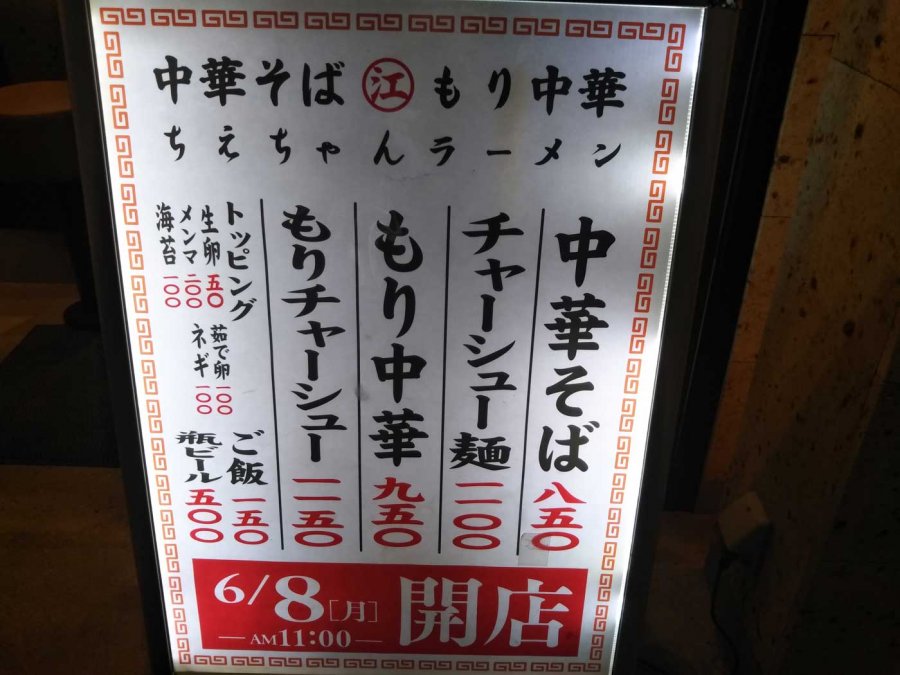 中華そば 江 もり中華
ちえちゃんラーメン
中華そば 八五〇
チャーシュー麺 一一〇〇
もり中華 九五〇
もりチャーシュー 一一五〇
トッピング
生卵 五〇
メンマ 二〇〇
海苔 一〇〇
茹で卵 一〇〇
ネギ 一〇〇
ご飯 一五〇
瓶ビール 五〇〇
6/8[月] 開店
—AM11:00—